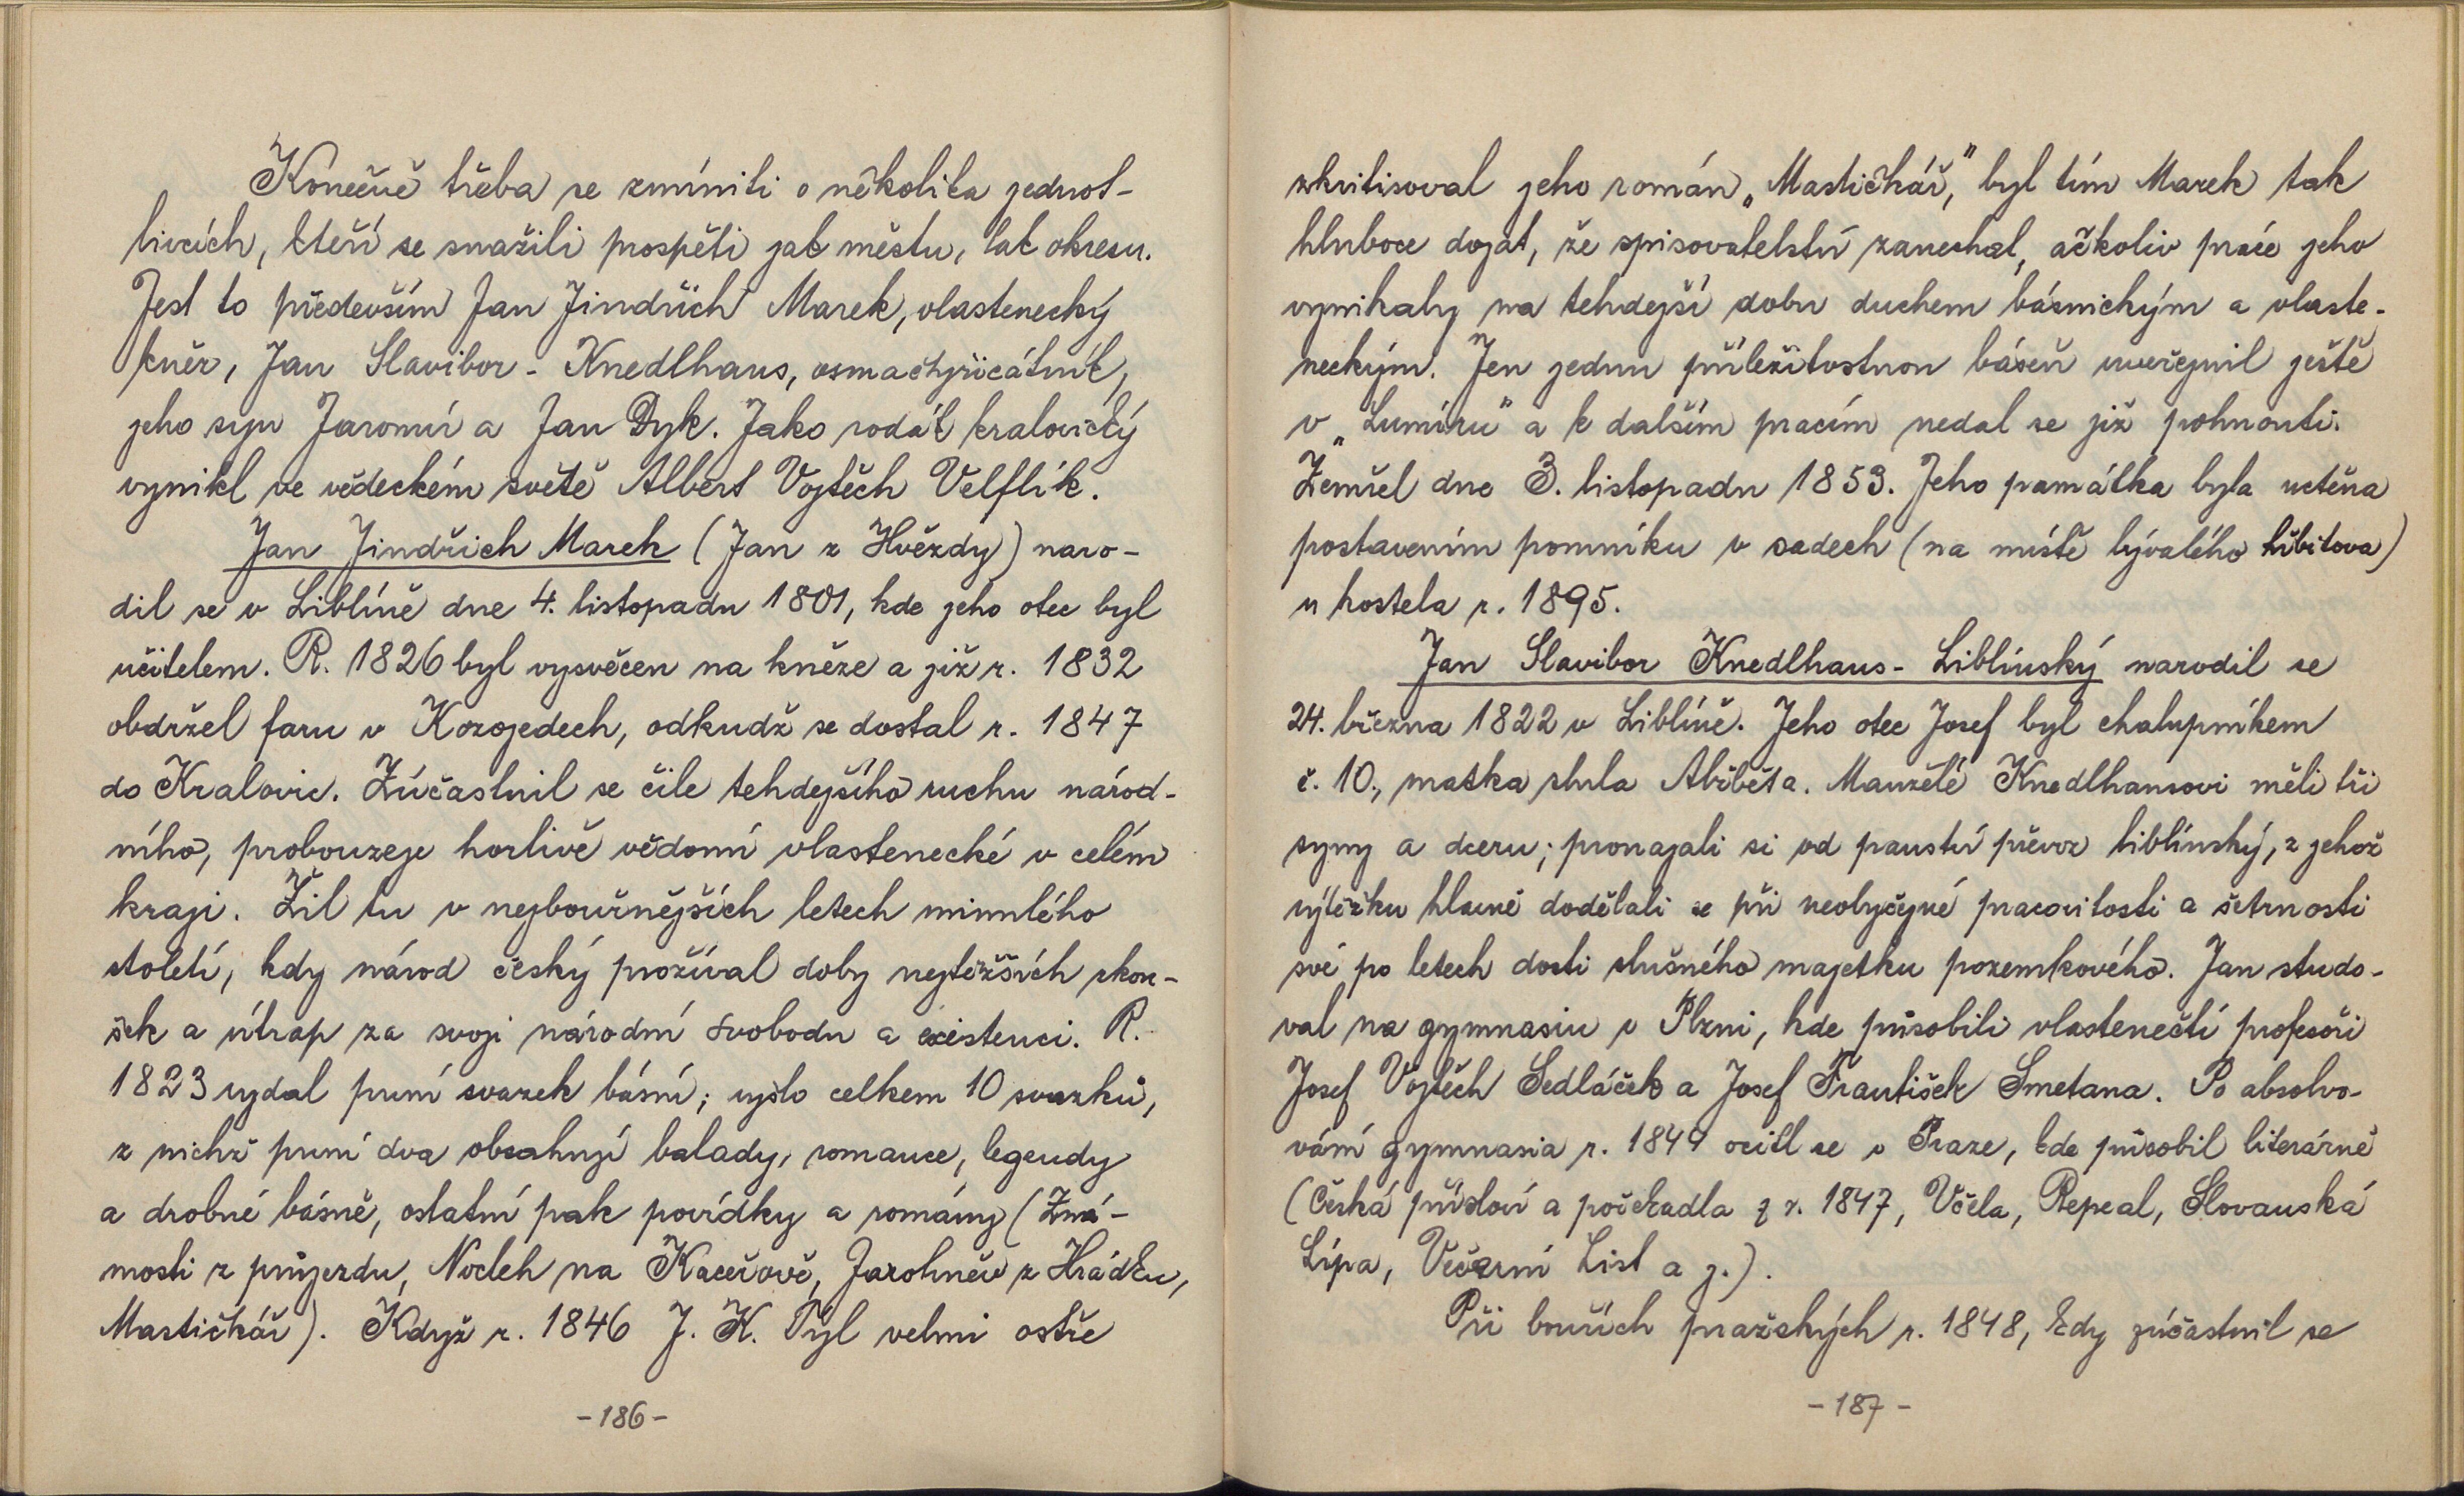 Konečně třeba se zmíniti o několika jednot-
livcích, kteří se snažili prospěti jak městu, tak okresu.
Jest to především Jan Jindřich Marek, vlastenecký
kněz, Jan Slavibor - Knedlhaus, osmačtyřicátník,
jeho syn Jaromír a Jan Dyk. Jako rodák kralovický
vynikl ve vědeckém světě Albert Vojtěch Velflík.
Jan Jindřich Marek (Jan z Hvězdy) naro-
dil se v Liblíně dne 4. listopadu 1801, kde jeho otec byl
učitelem. R. 1826 byl vysvěcen na kněze a již r. 1832
obdržel faru v Kozojedech, odkudž se dostal r. 1847
do Kralovic. Zúčastnil se čile tehdejšího ruchu národ-
ního, probouzeje horlivě vědomí vlastenecké v celém
kraji. Žil tu v nejbouřnějších letech minulého
století, kdy národ český prožíval doby nejtěžších zkou-
šek a útrap za svoji národní svobodu a existenci. R.
1823 vydal první svazek básní; vyšlo celkem 10 svazků,
z nichž první dva obsahují balady, romance, legendy
a drobné básně, ostatní pak povídky a romány (Zná-
mosti z průjezdu, Nocleh na Kaceřově, Jarohněv z Hrádku,
Mastičkář). Když r. 1846 J. K. Tyl velmi ostře
- 186 -
zkritisoval jeho román „Mastičkář,“ byl tím Marek tak
hluboce dojat, že spisovatelství zanechal, ačkoliv práce jeho
vynikaly na tehdejší dobu duchem básnickým a vlaste-
neckým. Jen jednu příležitostnou báseň uveřejnil ještě
v „Lumíru“ a k dalším pracím nedal se již pohnouti.
Zemřel dne 3. listopadu 1853. Jeho památka byla uctěna
postavením pomníku v sadech (na místě bývalého hřbitova)
u kostela r. 1895.
Jan Slavibor Knedlhaus - Liblínský narodil se
24. března 1822 v Liblíně. Jeho otec Josef byl chalupníkem
č. 10., matka slula Alžběta. Manželé Knedlhansovi měli tři
syny a dceru; pronajali si od panství převoz liblínský, z jehož
výtěžku hlavně dodělali se při neobyčejné pracovitosti a šetrnosti
své po letech dosti slušného majetku pozemkového. Jan studo-
val na gymnasiu v Plzni, kde působili vlastenečtí profesoři
Josef Vojtěch Sedláček a Josef František Smetana. Po absolvo-
vání gymnasia r. 1844 ocitl se v Praze, kde působil literárně
(Česká přísloví a pořekadla z r. 1847, Včela, Repeal, Slovanská
Lípa, Večerní List a j.).
Při bouřích pražských r. 1848, kdy zúčastnil se
- 187 -